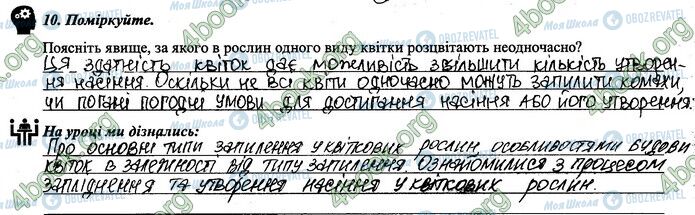 10. Поміркуйте.
Поясніть явище, за якого в рослин одного виду квітки розцвітають неодночасно?
Ця здатність квіток дає можливість збільшити кількість утворен-
ня насіння. Оскільки не всі квіти одночасно можуть запилити комахи,
чи погані погодні умови для достигання насіння або його утворення.
На уроці ми дізнались:
Про основні типи запилення у квіткових рослин, особливостями будови
квіток в залежності від типу запилення. Ознайомилися з процесом
запліднення та утворення насіння у квіткових рослин.